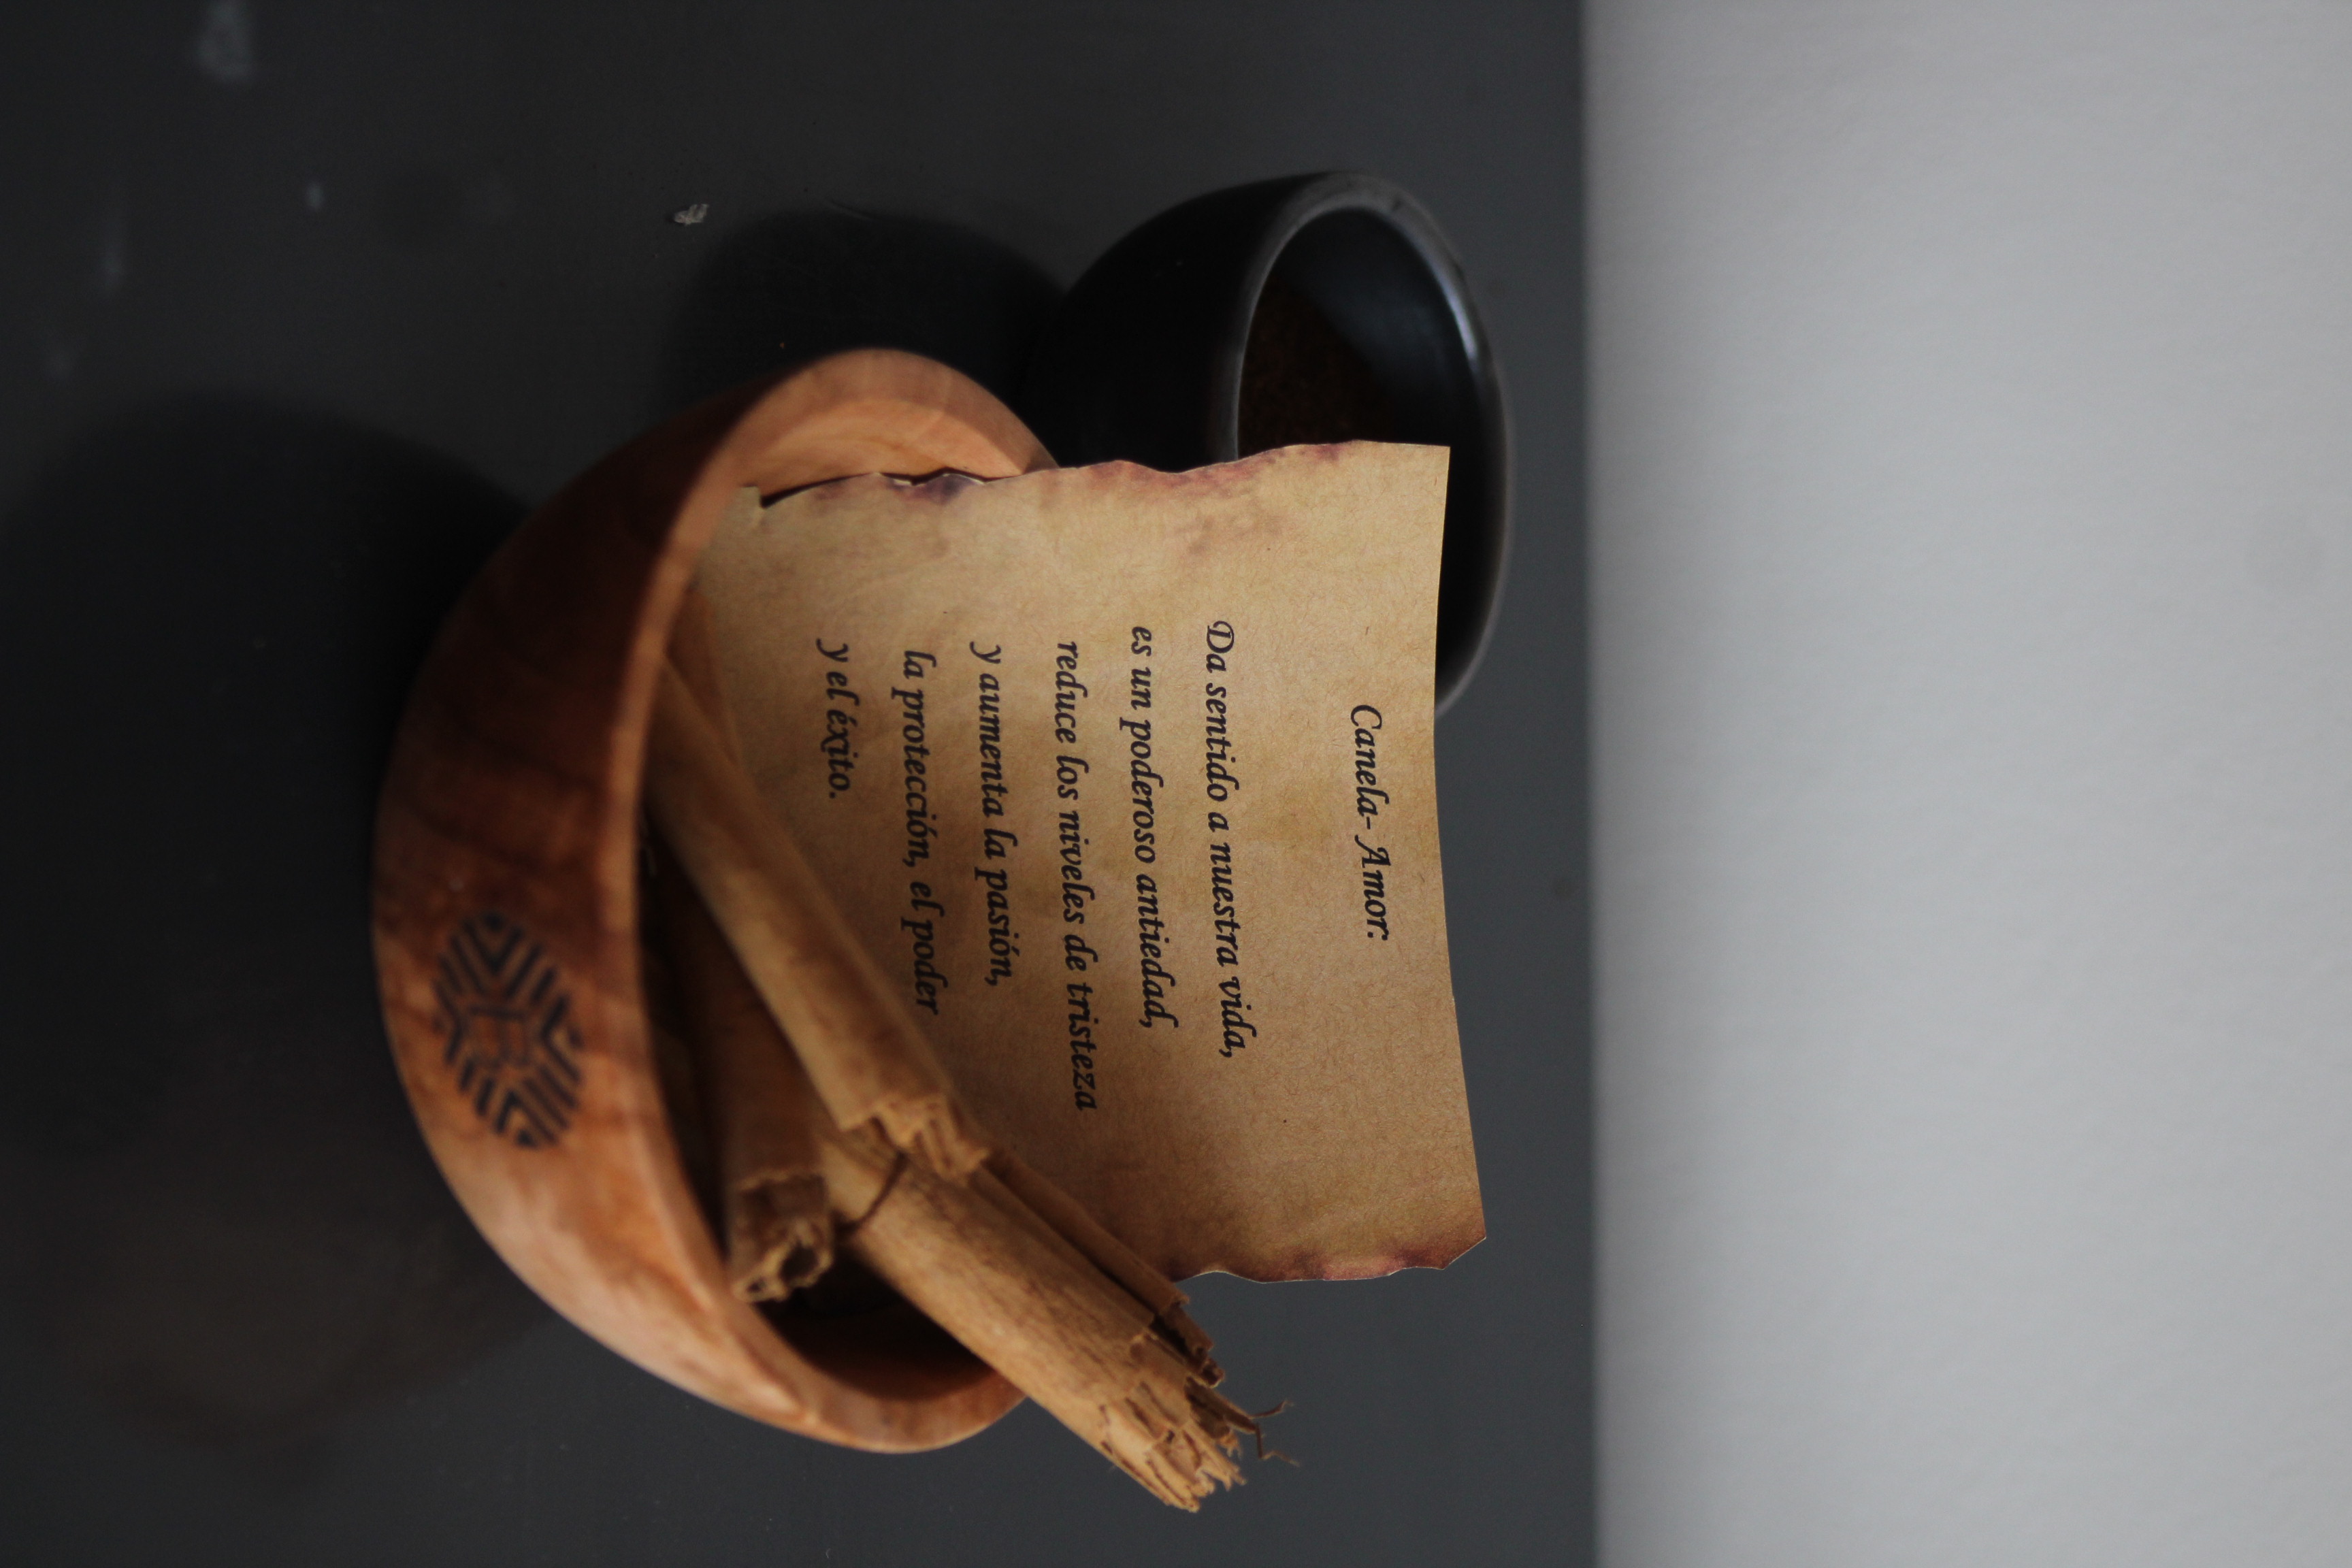 Canela- Amor:
Da sentido a nuestra vida,
es un poderoso antiedad,
reduce los niveles de tristeza
y aumenta la pasión,
la protección, el poder
y el éxito.